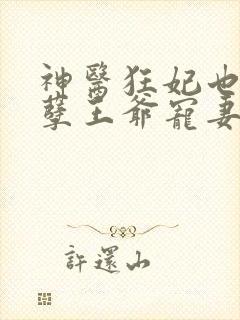 神醫狂妃也
孽王爺寵妻
許還山